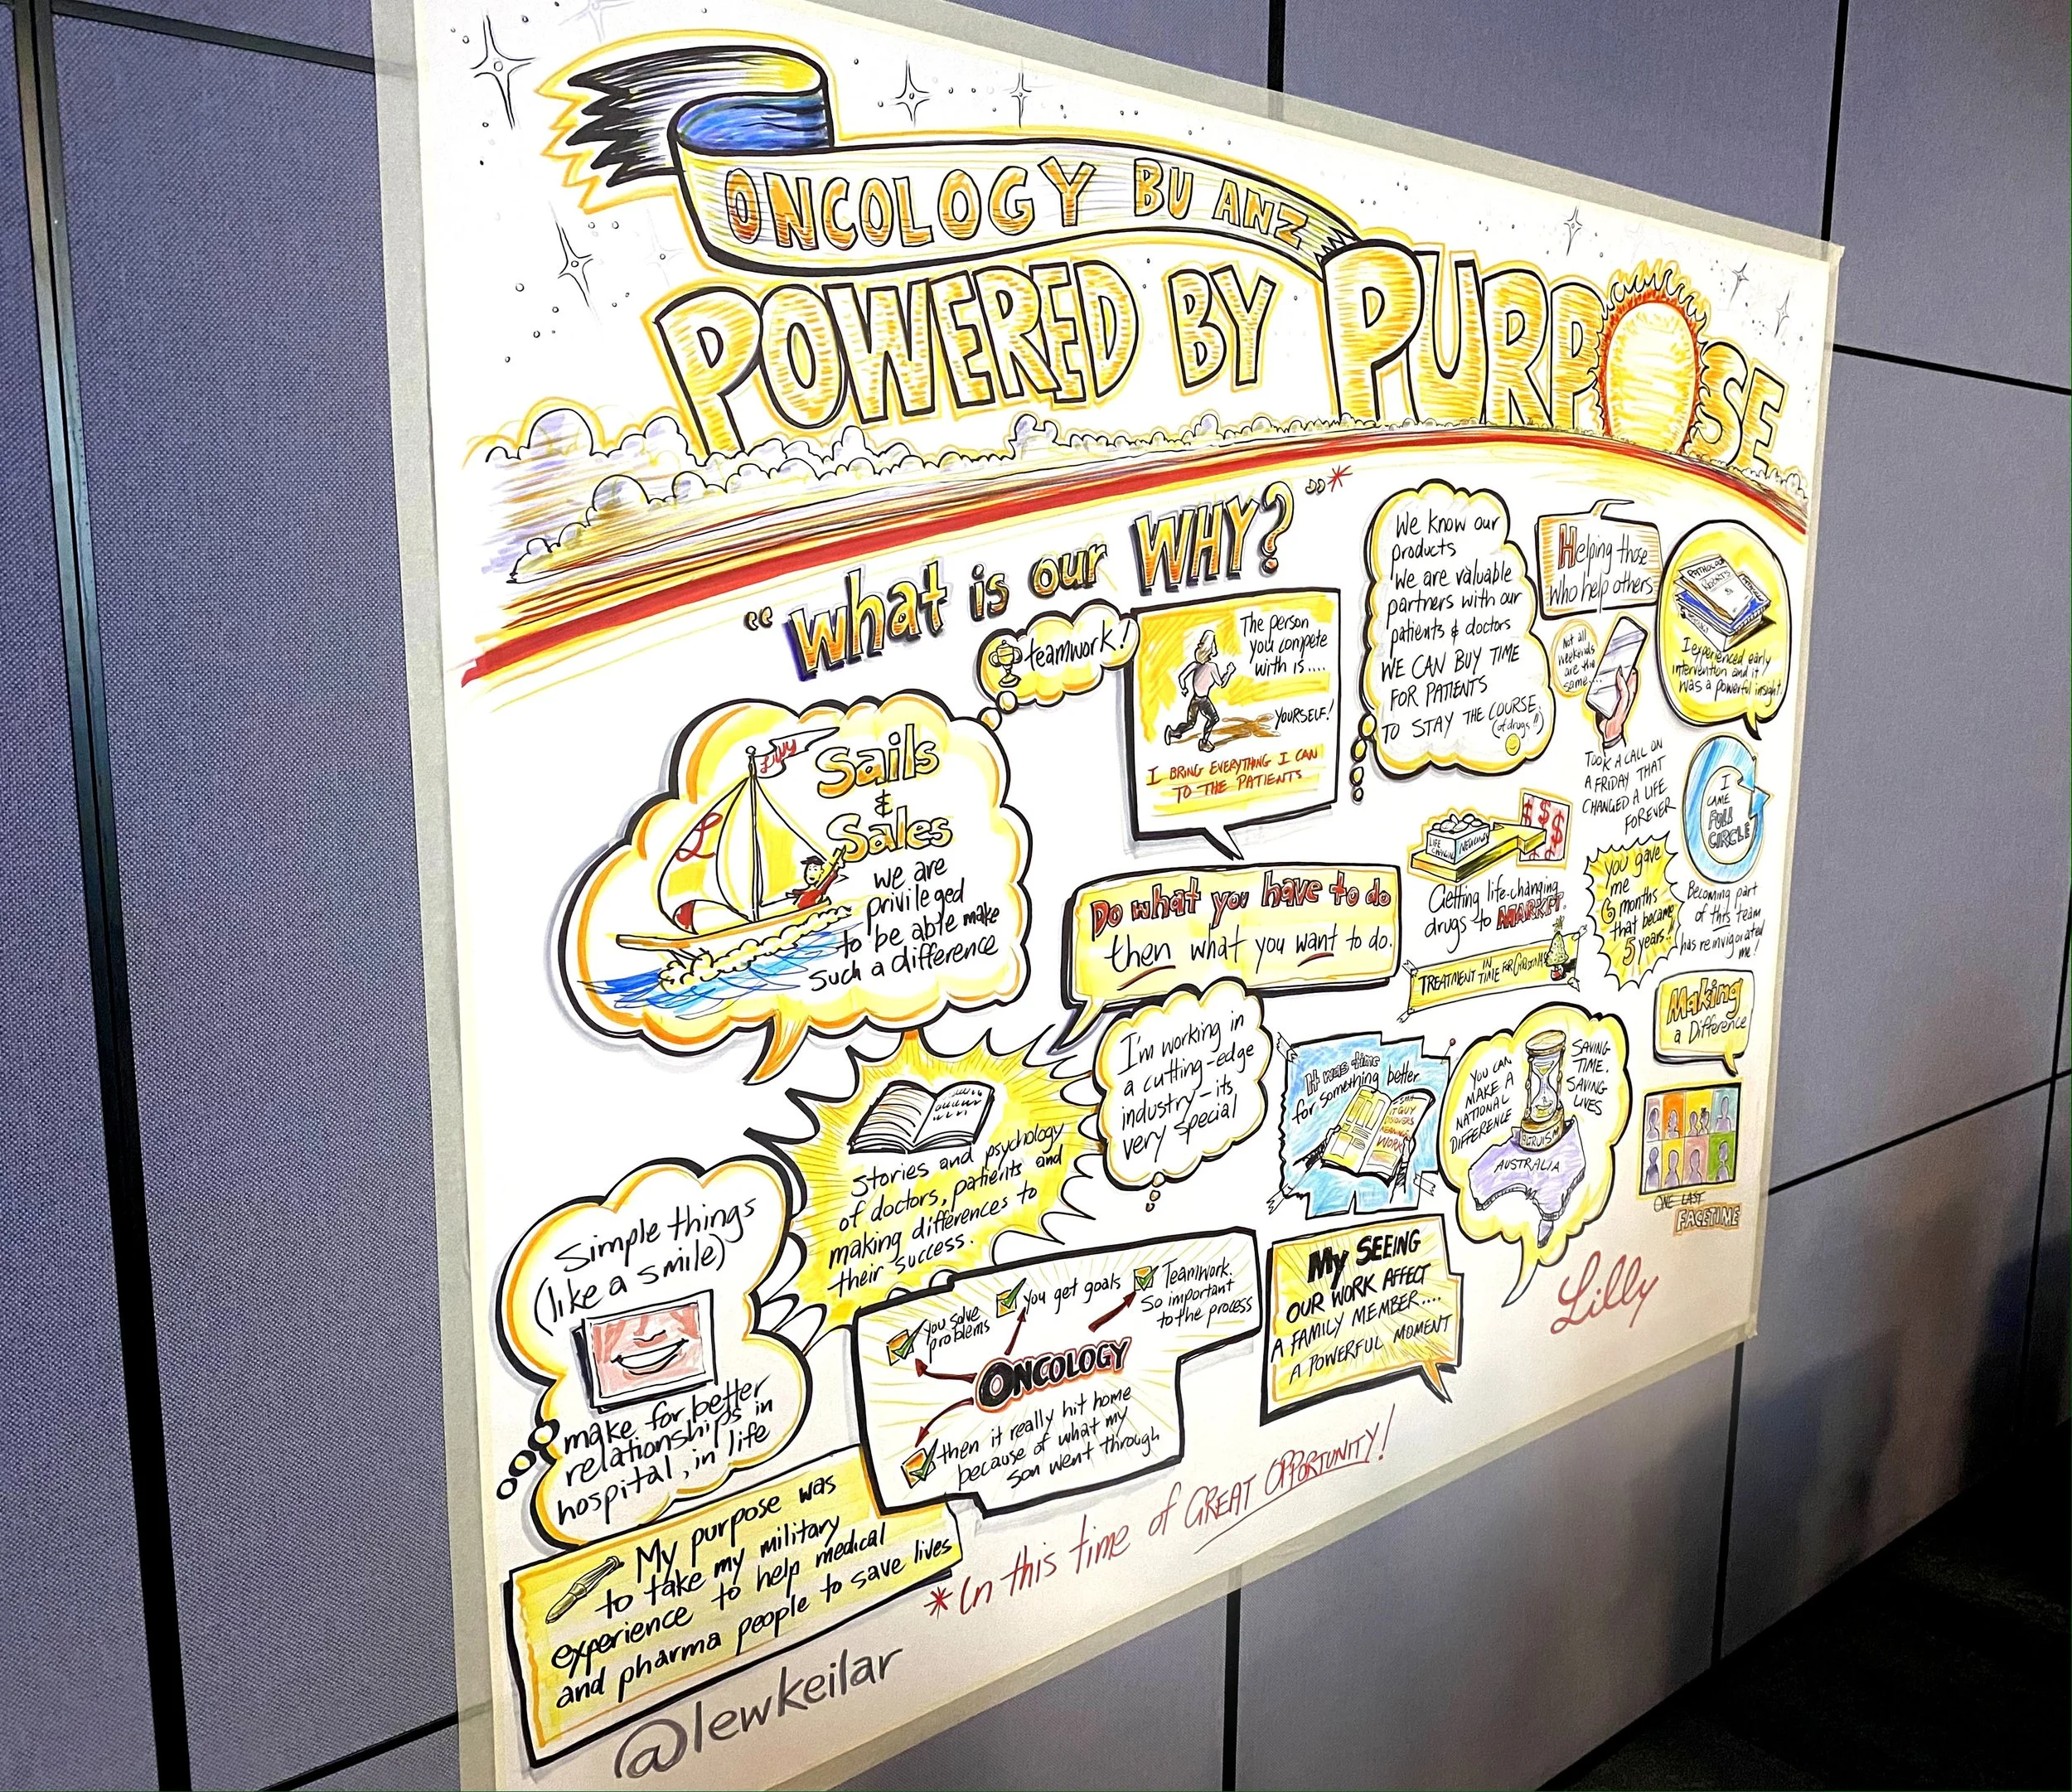 ONCOLOGY BU ANZ
POWERED BY PURPOSE
"What is our WHY?"*
teamwork!
Lilly
L
Sails
&
Sales
we are
privileged
to be able make
such a difference
The person
you compete
with is....
YOURSELF!
I BRING EVERYTHING I CAN
TO THE PATIENTS
We know our
products
We are valuable
partners with our
patients & doctors
WE CAN BUY TIME
FOR PATIENTS
TO STAY THE COURSE
(of drugs!!)
Helping those
who help others
PATHOLOGY
REPORTS
I experienced early
intervention and it
was a powerful insight.
Not all
weekends
are the
same...
TOOK A CALL ON
A FRIDAY THAT
CHANGED A LIFE
FOREVER
I
CAME
FULL
CIRCLE
Becoming part
of this team
has reinvigorated
me!
Do what you have to do
then what you want to do.
$ $ $
LIFE
Getting life-changing
drugs to MARKET.
TREATMENT IN TIME FOR
You gave
me
6 months
that became
5 years!!
Making
a Difference
Stories and psychology
of doctors, patients and
making differences to
their success.
I'm working in
a cutting-edge
industry - its
very special
It was time
for something better
WORK
YOU CAN
MAKE A
NATIONAL
DIFFERENCE
SAVING
TIME.
SAVING
LIVES
AUSTRALIA
ONE LAST
FACETIME
Simple things
(like a smile)
make for better
relationships in
hospital, in life
You solve
problems
You get goals
Teamwork.
So important
to the process
ONCOLOGY
then it really hit home
because of what my
son went through
My SEEING
OUR WORK AFFECT
A FAMILY MEMBER....
A POWERFUL MOMENT
Lilly
My purpose was
to take my military
experience to help medical
and pharma people to save lives
*In this time of GREAT OPPORTUNITY!
@lewkeilar